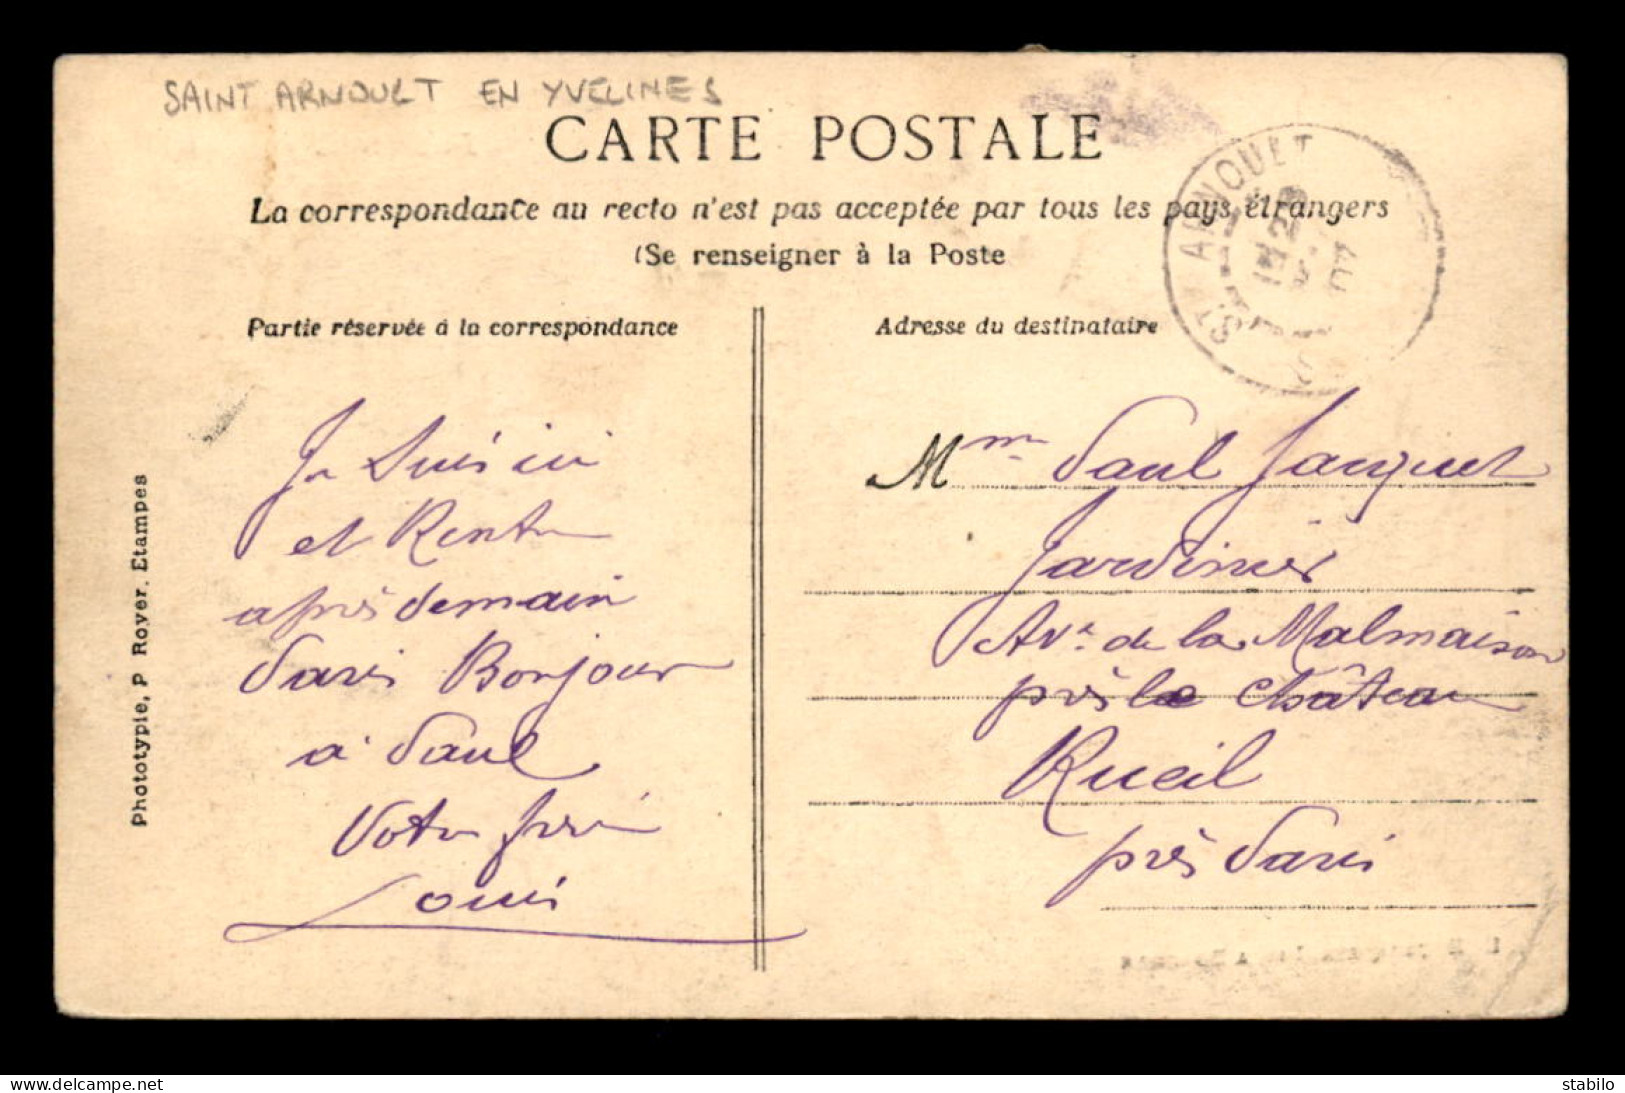 SAINT ARNOULT EN YVELINES
CARTE POSTALE
La correspondance au recto n'est pas acceptée par tous les pays étrangers
(Se renseigner à la Poste
Partie réservée à la correspondance
Je suis ici
et Rentre
après demain
Paris Bonjour
à Paul
Votre frère
Louis
Phototypie, P Royer. Etampes
Adresse du destinataire
Mme Paul Jacquet
Jardinier
Av. de la Malmaison
près le Château
Rueil
près Paris
ST ARNOULT
delcampe.net
stabilo